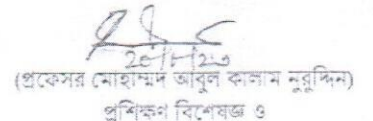 ২০/৮/২০
(প্রফেসর মোহাম্মদ আবুল কালাম নুরুদ্দিন)
প্রশিক্ষণ বিশেষজ্ঞ ও